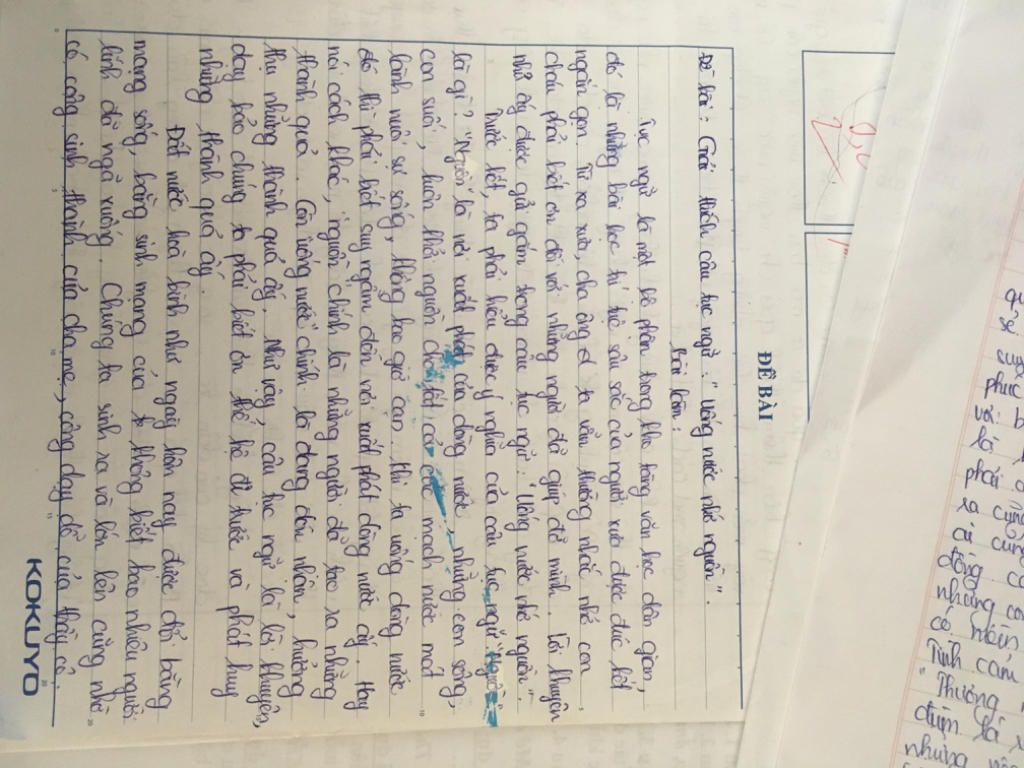 ĐỀ BÀI
Đề bài: Giải thích câu tục ngữ: "Uống nước nhớ nguồn".
Bài làm:
Tục ngữ là một bộ phận trong kho tàng văn học dân gian,
đó là những bài học trí tuệ sâu sắc của người xưa được đúc kết
ngắn gọn. Từ xa xưa, cha ông ta vẫn thường nhắc nhở con
cháu phải biết ơn đối với những người đã giúp đỡ mình. Lời khuyên
nhủ ấy được gửi gắm trong câu tục ngữ: "Uống nước nhớ nguồn".
Trước hết, ta phải hiểu được ý nghĩa của câu tục ngữ. "Nguồn"
là gì? "Nguồn" là nơi xuất phát của dòng nước, những con sông,
con suối, luôn thổi nguồn cho tất cả các mạch nước mát
lành nuôi sự sống, không bao giờ cạn. Khi ta uống dòng nước
đó thì phải biết suy ngẫm đến nơi xuất phát dòng nước ấy. Hay
nói cách khác, "nguồn" chính là những người đã tạo ra những
thành quả. Còn "uống nước" chính là đang đón nhận, hưởng
thụ những thành quả ấy. Như vậy, câu tục ngữ là lời khuyên,
dạy bảo chúng ta phải biết ơn thế hệ đi trước và phát huy
những thành quả ấy.
Đất nước hoà bình như ngày hôm nay được đổi bằng
mạng sống, bằng sinh mạng của không biết bao nhiêu người
lính đã ngã xuống. Chúng ta sinh ra và lớn lên cũng nhờ
có công sinh thành của cha mẹ, công dạy dỗ của thầy cô.
KOKUYO
sẽ
suy
phúc
với b
là
phải
ra cũng
ai cũng
đồng c
những con
có nhân
Tình cảm
"Thương
đùm lá
nhưng